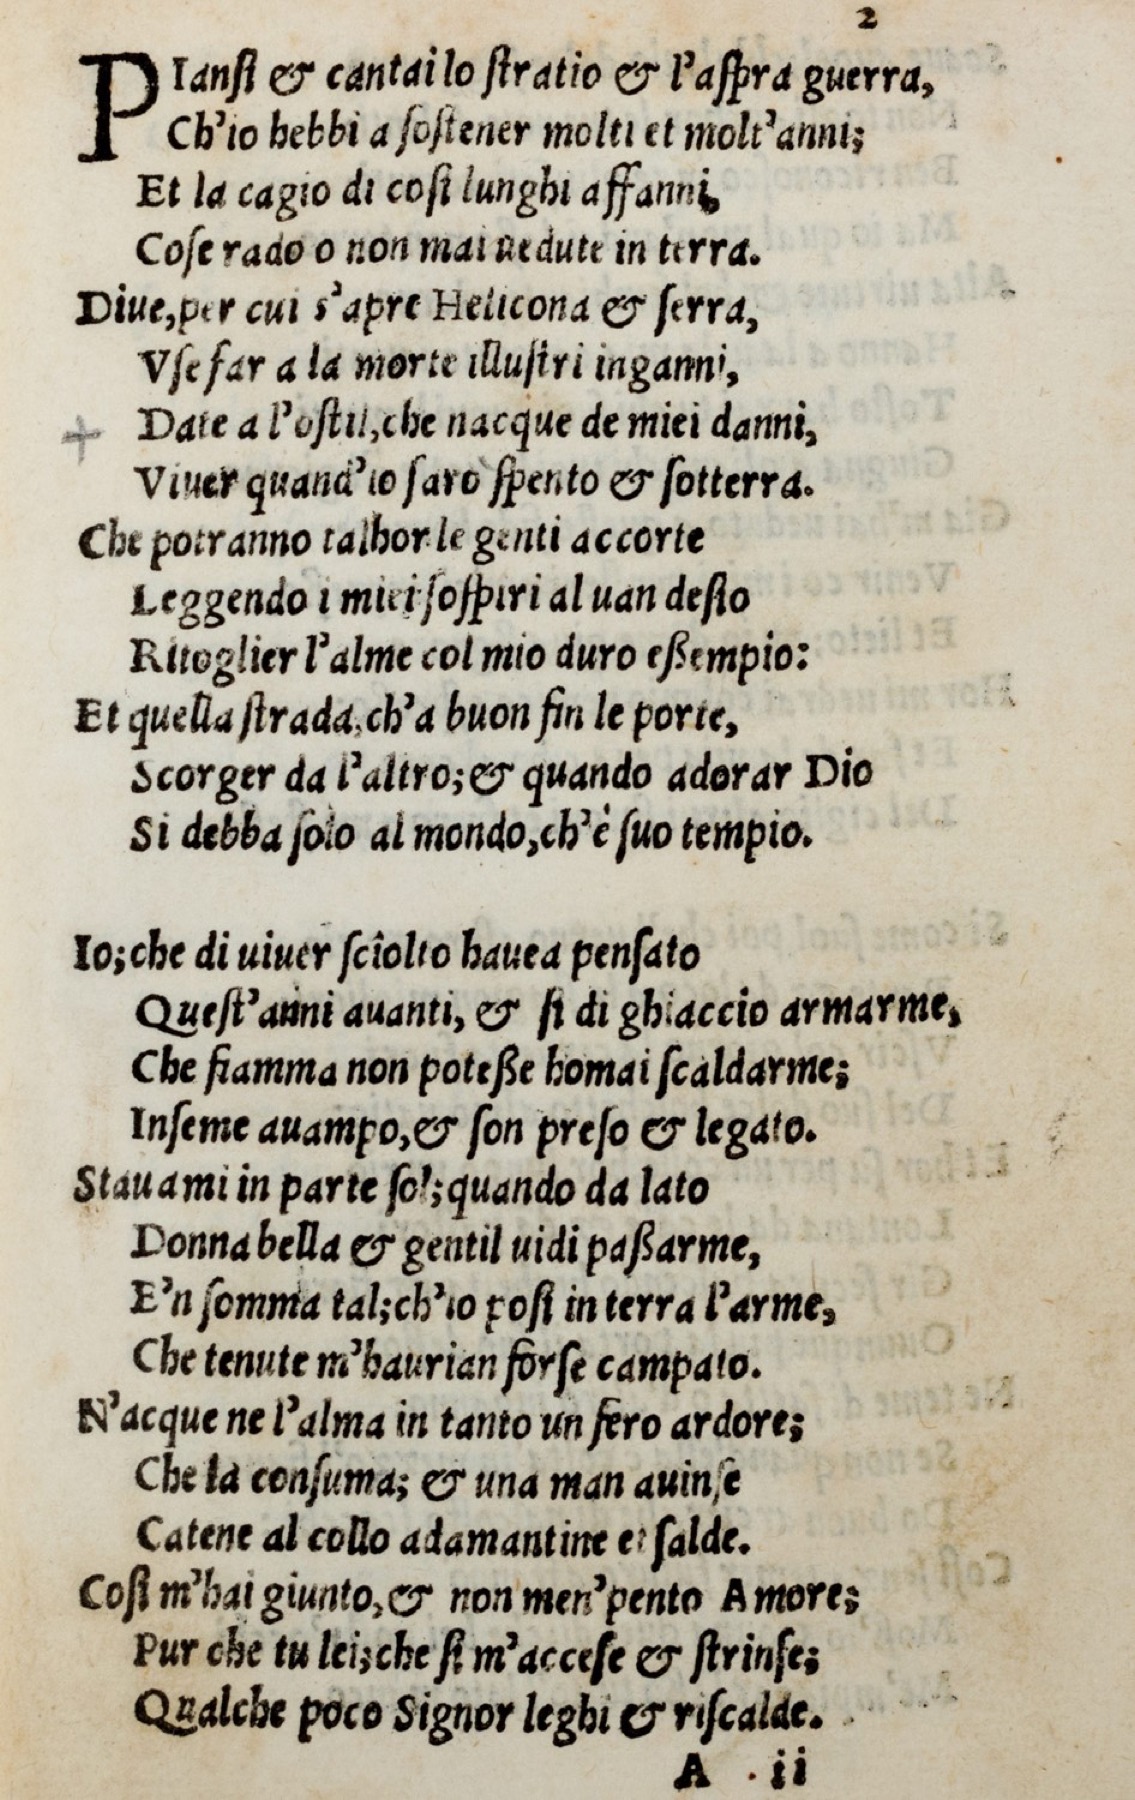 2
PIansi & cantai lo stratio & l'aspra guerra,
Ch'io hebbi a sostener molti et molt'anni;
Et la cagio di cosi lunghi affanni,
Cose rado o non mai uedute in terra.
Diue, per cui s'apre Helicona & serra,
Vse far a la morte illustri inganni,
Date a l'ostil, che nacque de miei danni,
Viuer quand'io saro spento & sotterra.
Che potranno talhor le genti accorte
Leggendo i miei sospiri al uan desio
Ritoglier l'alme col mio duro eßempio:
Et quella strada, ch'a buon fin le porte,
Scorger da l'altro; & quando adorar Dio
Si debba solo al mondo, ch'è suo tempio.
Io; che di uiuer sciolto hauea pensato
Quest'anni auanti, & si di ghiaccio armarme,
Che fiamma non poteße homai scaldarme;
Inseme auampo, & son preso & legato.
Stauami in parte sol; quando da lato
Donna bella & gentil uidi paßarme,
E'n somma tal; ch'io posi in terra l'arme,
Che tenute m'haurian forse campato.
N'acque ne l'alma in tanto un fero ardore;
Che la consuma; & una man auinse
Catene al collo adamantine et salde.
Cosi m'hai giunto, & non men'pento Amore;
Pur che tu lei; che si m'accese & strinse;
Qualche poco Signor leghi & riscalde.
A ii